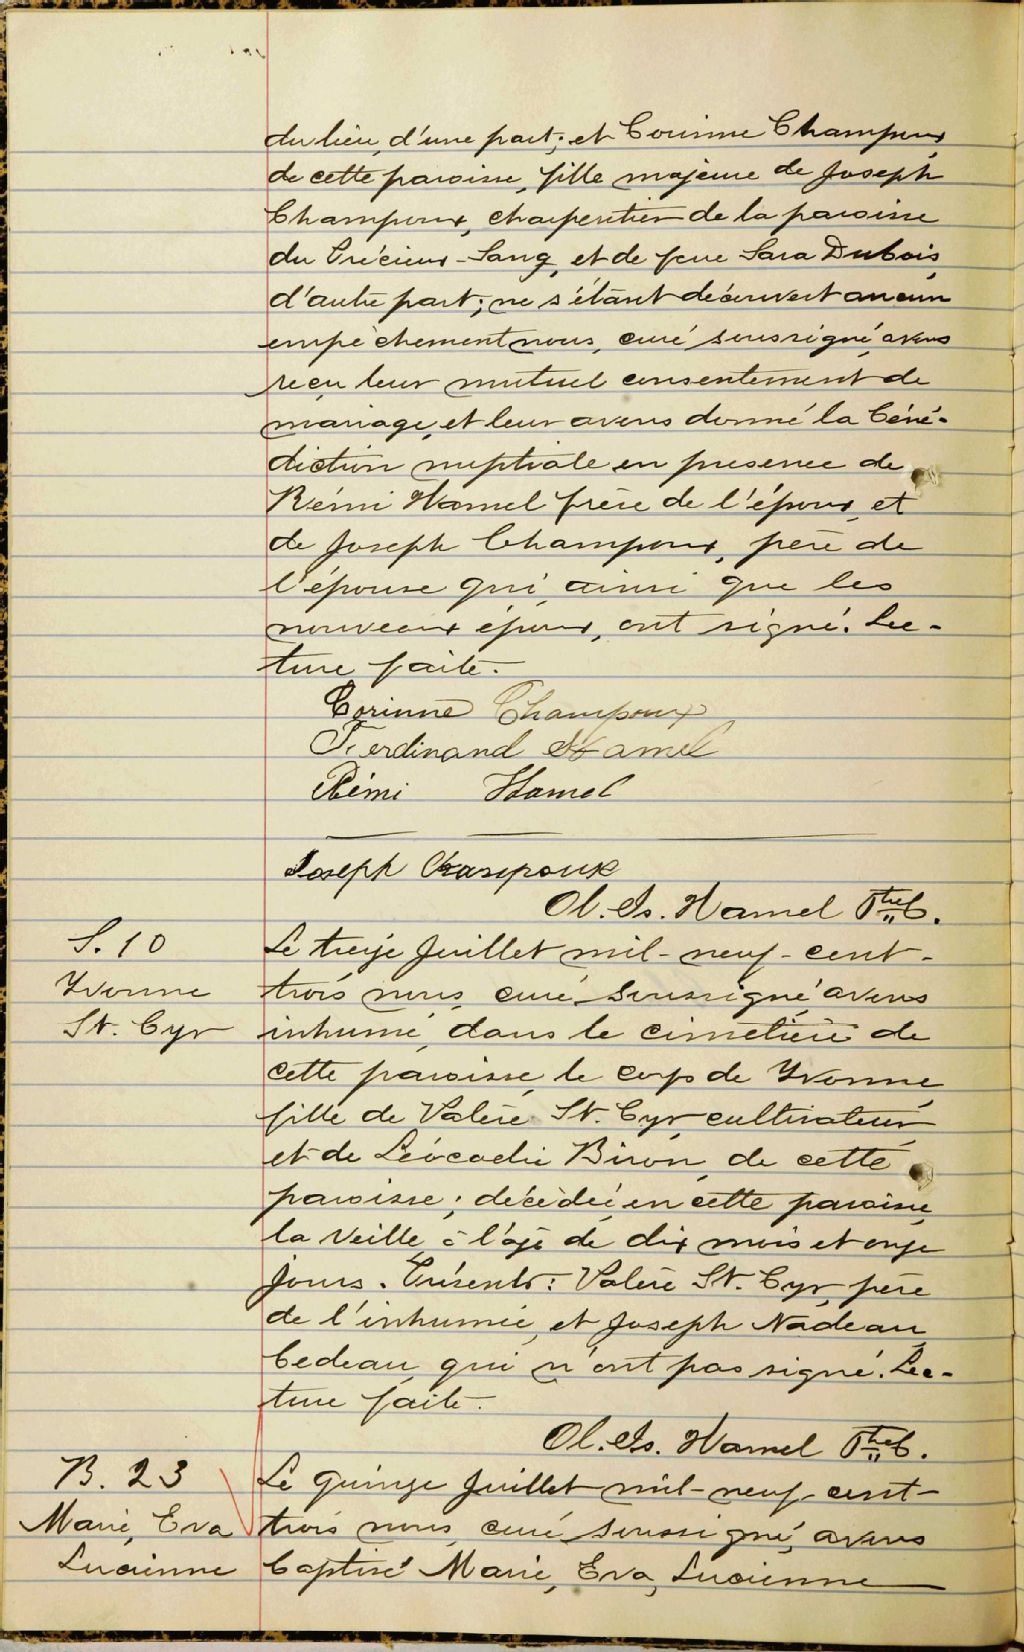 du lieu, d'une part; et Corinne Champoux,
de cette paroisse, fille majeure de Joseph
Champoux, charpentier de la paroisse
du Précieux-Sang, et de feue Sara Dubois,
d'autre part; ne s'étant découvert aucun
empêchement nous, curé soussigné, avons
reçu leur mutuel consentement de
mariage, et leur avons donné la béné-
diction nuptiale en presence de
Rémi Hamel frère de l'époux, et
de Joseph Champoux, père de
l'épouse qui, ainsi que les
nouveaux époux, ont signé. Lec-
ture faite.
Corinne Champoux
Ferdinand Hamel
Rémi Hamel
Joseph Champoux
Ol. Is. Hamel Ptre C.
S. 10
Yvonne
St. Cyr
Le treize Juillet mil-neuf-cent-
trois nous, curé, soussigné, avons
inhumé, dans le cimetière de
cette paroisse, le corps de Yvonne,
fille de Valère St. Cyr, cultivateur,
et de Léocadie Biron, de cette
paroisse; décédée en cette paroisse,
la veille à l'âge de dix mois et onze
jours. Présents: Valère St. Cyr, père
de l'inhumée, et Joseph Nadeau,
bedeau, qui n'ont pas signé. Lec-
ture faite.
Ol. Is. Hamel Ptre C.
B. 23
Marie, Eva
Lucienne
Le quinze Juillet mil-neuf-cent-
trois nous, curé soussigné, avons
baptisé Marie, Eva, Lucienne